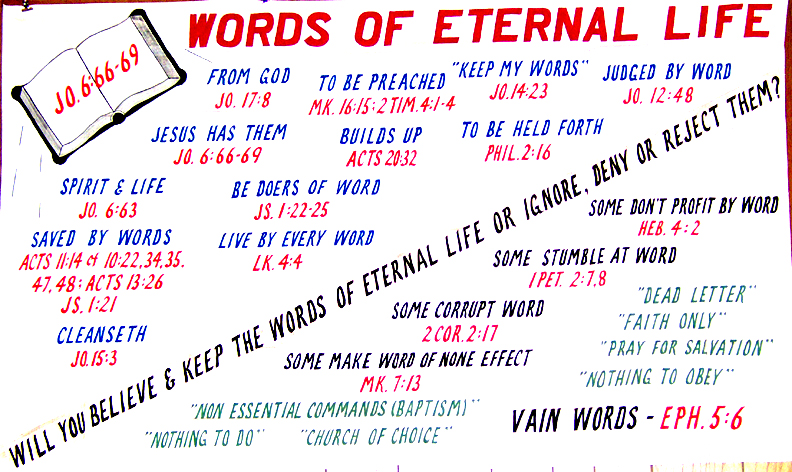 WORDS OF ETERNAL LIFE
JO. 6:66-69
FROM GOD
JO. 17:8
TO BE PREACHED
MK. 16:15:2 TIM. 4:1-4
"KEEP MY WORDS"
JO.14:23
JUDGED BY WORD
JO. 12:48
JESUS HAS THEM
JO. 6:66-69
BUILDS UP
ACTS 20:32
TO BE HELD FORTH
PHIL. 2:16
SPIRIT & LIFE
JO. 6:63
BE DOERS OF WORD
JS. 1:22-25
SAVED BY WORDS
ACTS 11:14 cf 10:22,34,35.
47,48: ACTS 13:26
JS. 1:21
LIVE BY EVERY WORD
LK. 4:4
CLEANSETH
JO. 15:3
WILL YOU BELIEVE & KEEP THE WORDS OF ETERNAL LIFE OR IGNORE, DENY OR REJECT THEM?
SOME DON'T PROFIT BY WORD
HEB. 4:2
SOME STUMBLE AT WORD
1 PET. 2:7,8
SOME CORRUPT WORD
2 COR. 2:17
SOME MAKE WORD OF NONE EFFECT
MK. 7:13
"DEAD LETTER"
"FAITH ONLY"
"PRAY FOR SALVATION"
"NOTHING TO OBEY"
"NON ESSENTIAL COMMANDS (BAPTISM)"
"NOTHING TO DO" "CHURCH OF CHOICE"
VAIN WORDS - EPH. 5:6